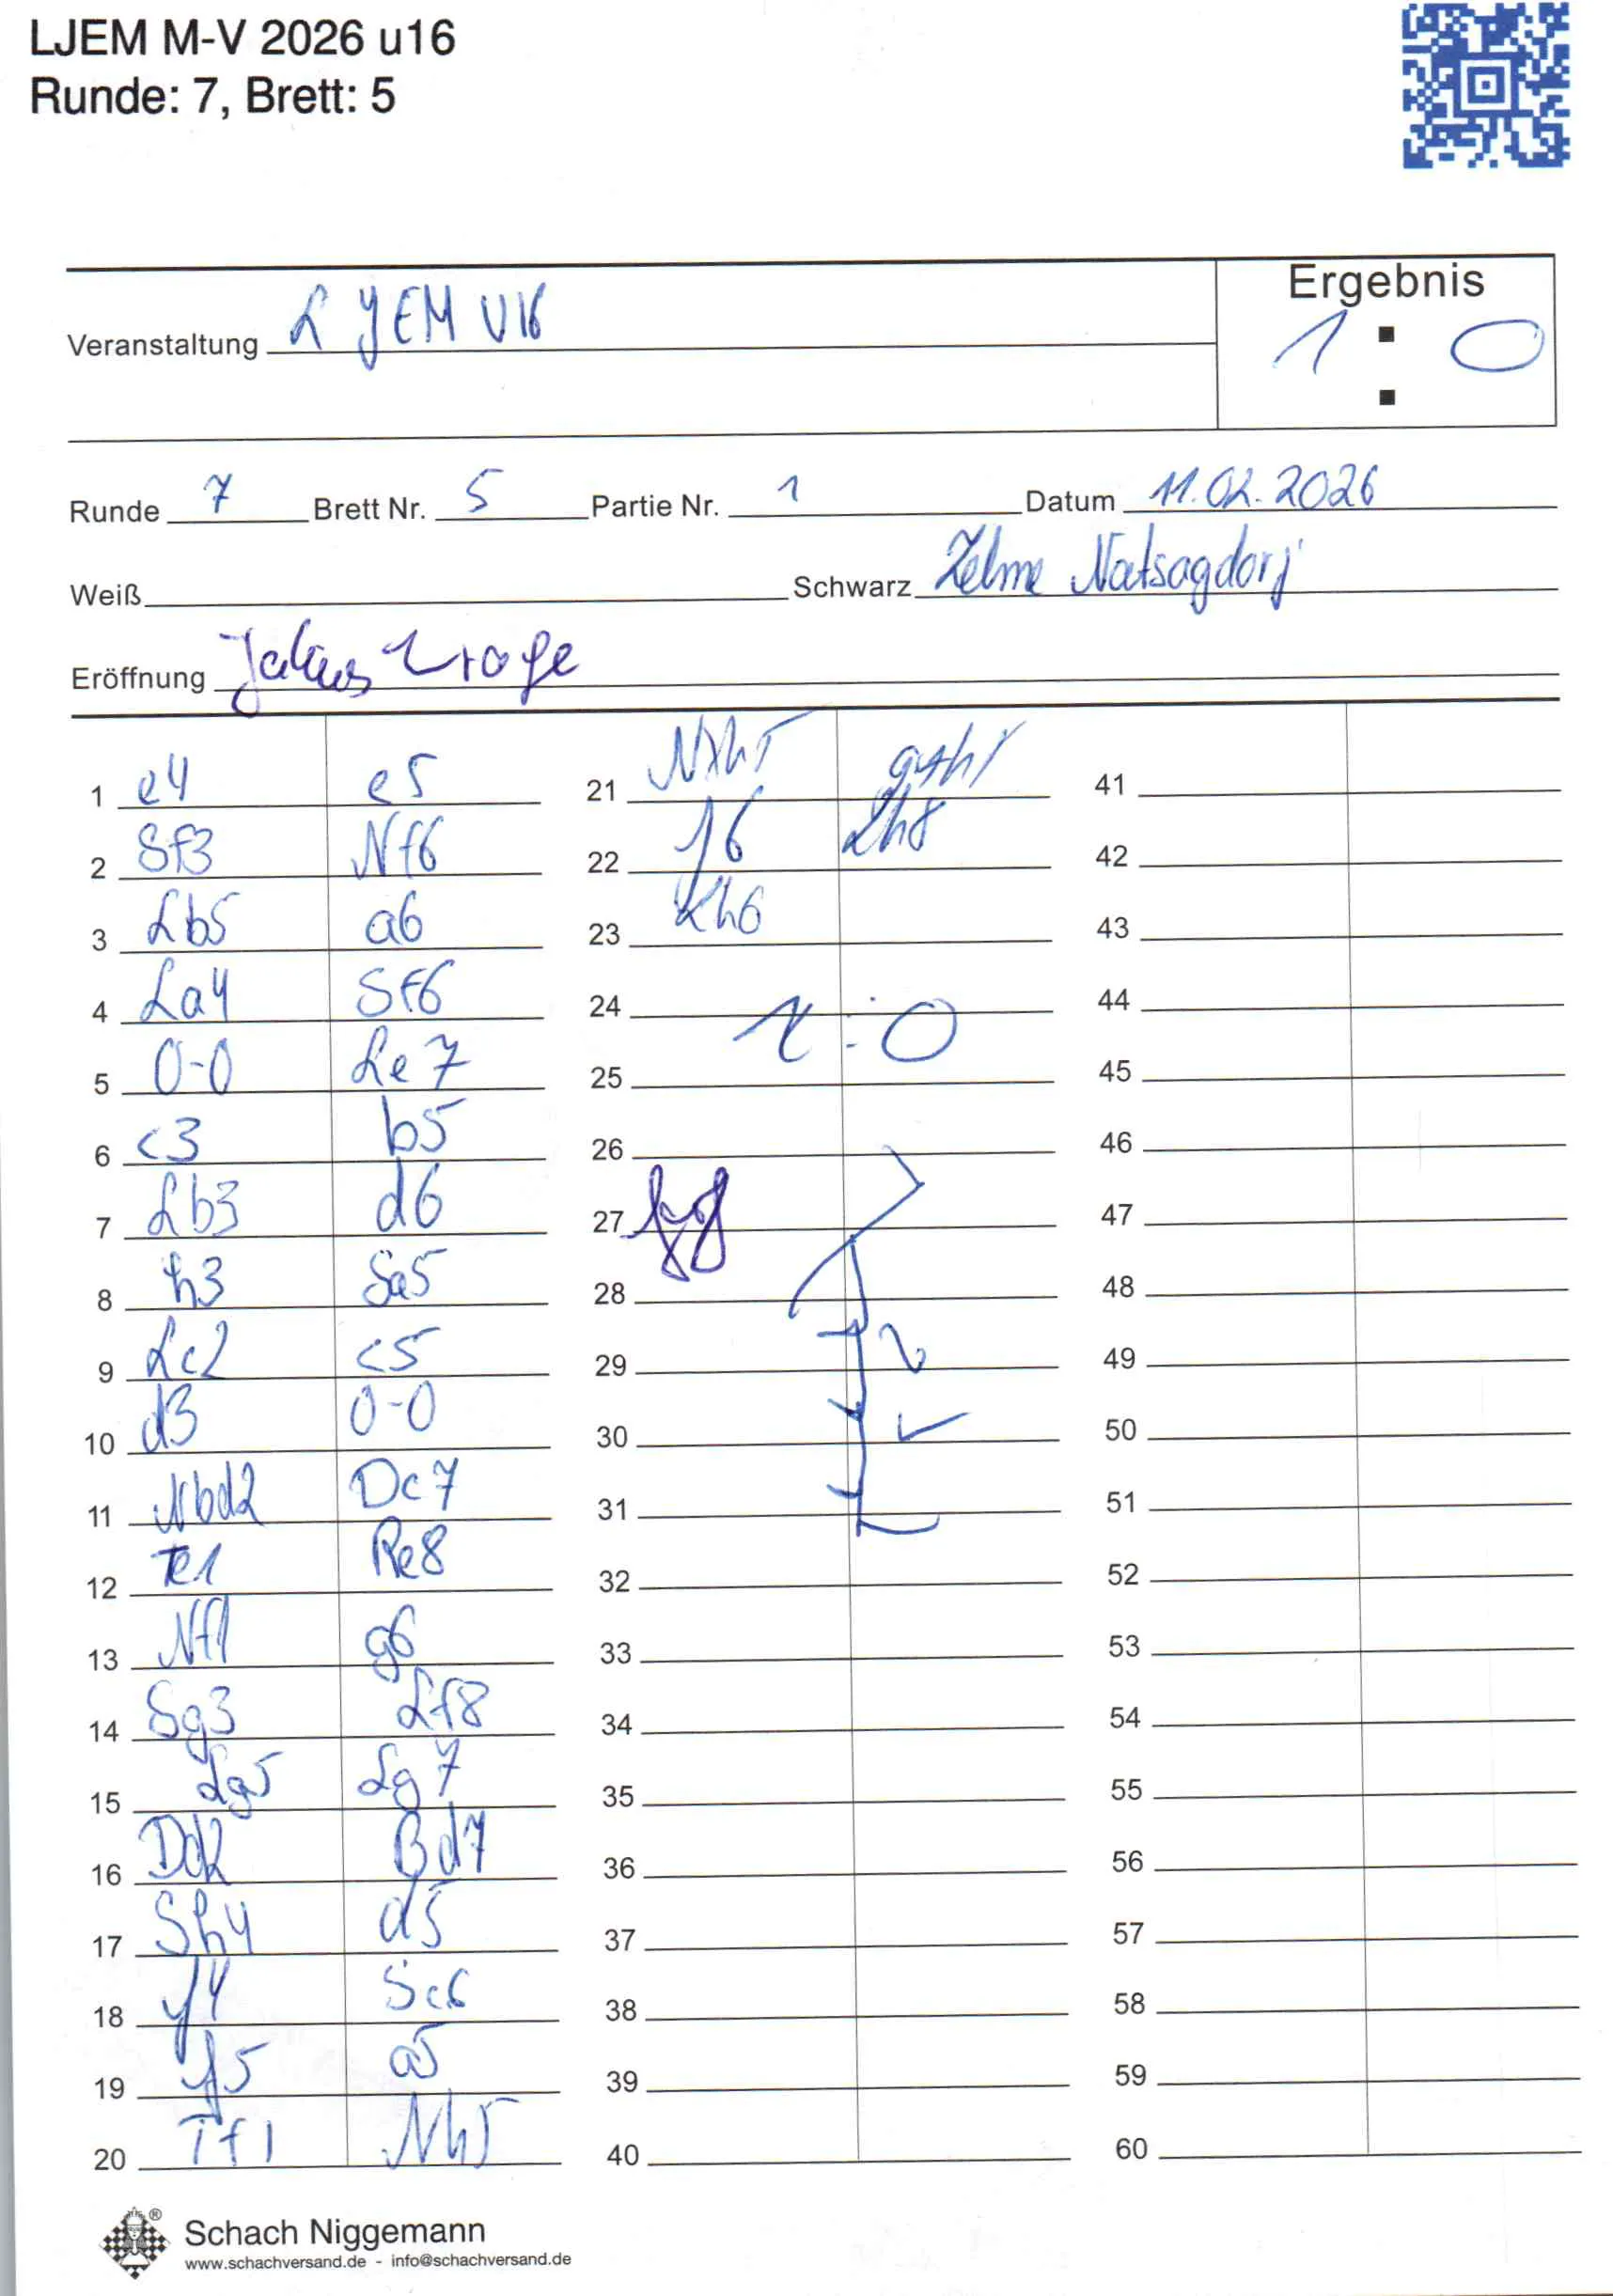 LJEM M-V 2026 u16
Runde: 7, Brett: 5
Ergebnis
Veranstaltung LJEM U16
1 : 0
:
Runde 7 Brett Nr. 5 Partie Nr. 1 Datum 11.02.2026
Weiß Schwarz Zelme Natsagdorj
Eröffnung
1 e4 e5
2 Sf3 Nf6
3 Lb5 a6
4 La4 Sf6
5 0-0 Le7
6 c3 b5
7 Lb3 d6
8 h3 Sa5
9 Lc2 c5
10 d3 0-0
11 Nbd2 Dc7
12 Te1 Re8
13 Nf1 g6
14 Sg3 Lf8
15 Lg5 Lg7
16 Dd2 Bd7
17 Sh4 d5
18 f4 Sc6
19 f5 a5
20 Tf1 Nh5
21 Nxh5 gxh5
22 f6 Lh8
23 Kh6
24
1:0
25
26
27
28
29
30
31
32
33
34
35
36
37
38
39
40
41
42
43
44
45
46
47
48
49
50
51
52
53
54
55
56
57
58
59
60
Schach Niggemann
www.schachversand.de - info@schachversand.de